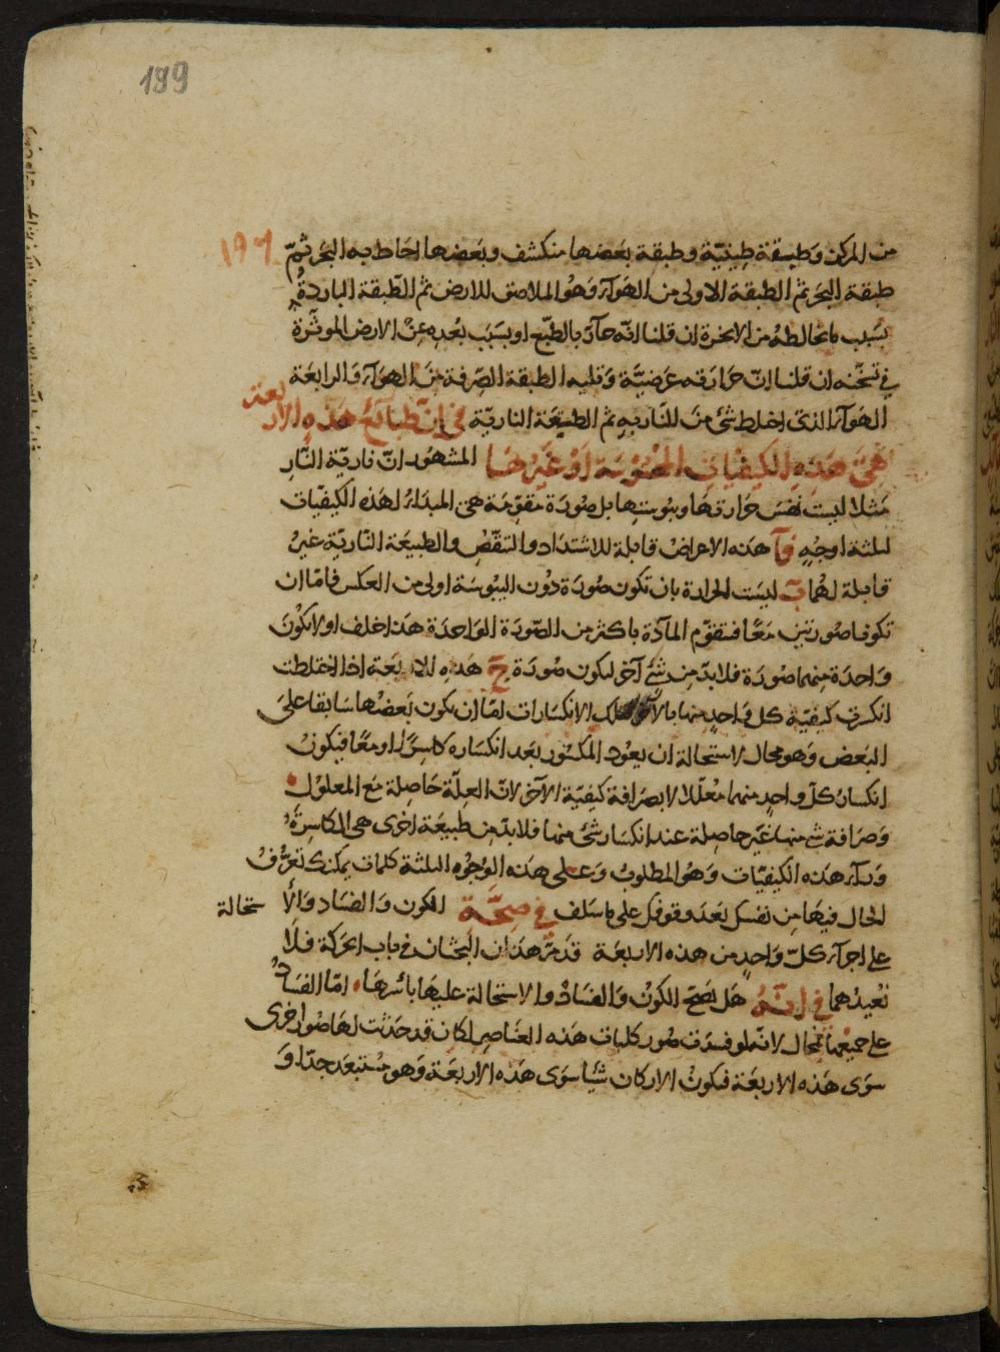 189
١٩٦
من المركز وطبقة طينيّة وطبقة بعضها منكشف وبعضها احاط به البحر ثمّ
طبقة البحر ثم الطبقة الاولى من الهوآء وهو الملاصق للارض ثم الطبقة الباردة
بسبب ما تخالطه من الابخرة ان قلنا انّه حآرّ بالطبع او بسبب بعده عن الارض الموثّرة
في تسخّنه ان قلنا انّ حرارته عرضيّة وتليه الطبقة الصرفة من الهوآء والرابعة
الهوآء الذى اختلط شئ من الناريه ثم الطبيعة النارية في انّ طبآئع هذه الاربعة
هى هذه الكيفيات المحسوسة او غيرها المشهور انّ نارية النّار
مثلا ليست نفس حرارتها ويبوستها بل صورة مقوّمة هى المبداء لهذه الكيفيّات
لثلثة اوجه آ هذه الاعراض قابلة للاشتداد والتنقّص والطبيعة الناريّة غير
قابلة لهما ب ليست الحرارة بان تكون صورة دون اليبوسة اولى من العكس فامّا ان
تكونا صورتين معًا فتقوّم المآدّة باكثر من الصّورة الواحدة هذا خلف او لا يكون
واحدة منهما صورة فلا بدّ من شئ آخر ليكون صورة ج هذه الاربعة اذا اختلطت
انكسرت كيفيّة كل واحد منها بالآخر فتلك الانكسارات امّا ان يكون بعضها سابقا على
البعض وهو محال لاستحالة ان يعود المكسور بعد انكساره كاسرًا او معًا فيكون
انكسار كلّ واحد منهما معلّلا بصرافة كيفيّة الآخر لانّ العلّة حاصلة مع المعلول
وصرافة شئ منها غير حاصلة عند انكسار شئ منها فلا بدّ من طبيعة اخرى هى الكاسرة
ورآء هذه الكيفيّات وهو المطلوب وعلى هذه الوجوه الثلثة كلمات يمكنك تعرّف
الحال فيها من نفسك بعد وقوفك على ما سلف في صحّة الكون والفساد والاستحالة
على اجزآء كلّ واحد من هذه الاربعة قد مرّ هذان البحثان في باب الحركة فلا
نعيدهما في انّه هل يصحّ الكون والفساد والاستحالة عليها باسرها امّا الفساد
على جميعها فمحال لانّه لو فسدت صور كليات هذه العناصر لكان قد حدثت لها صور اخرى
سوى هذه الاربعة فيكون الاركان شيئا سوى هذه الاربعة وهو مستبعد جدّا و